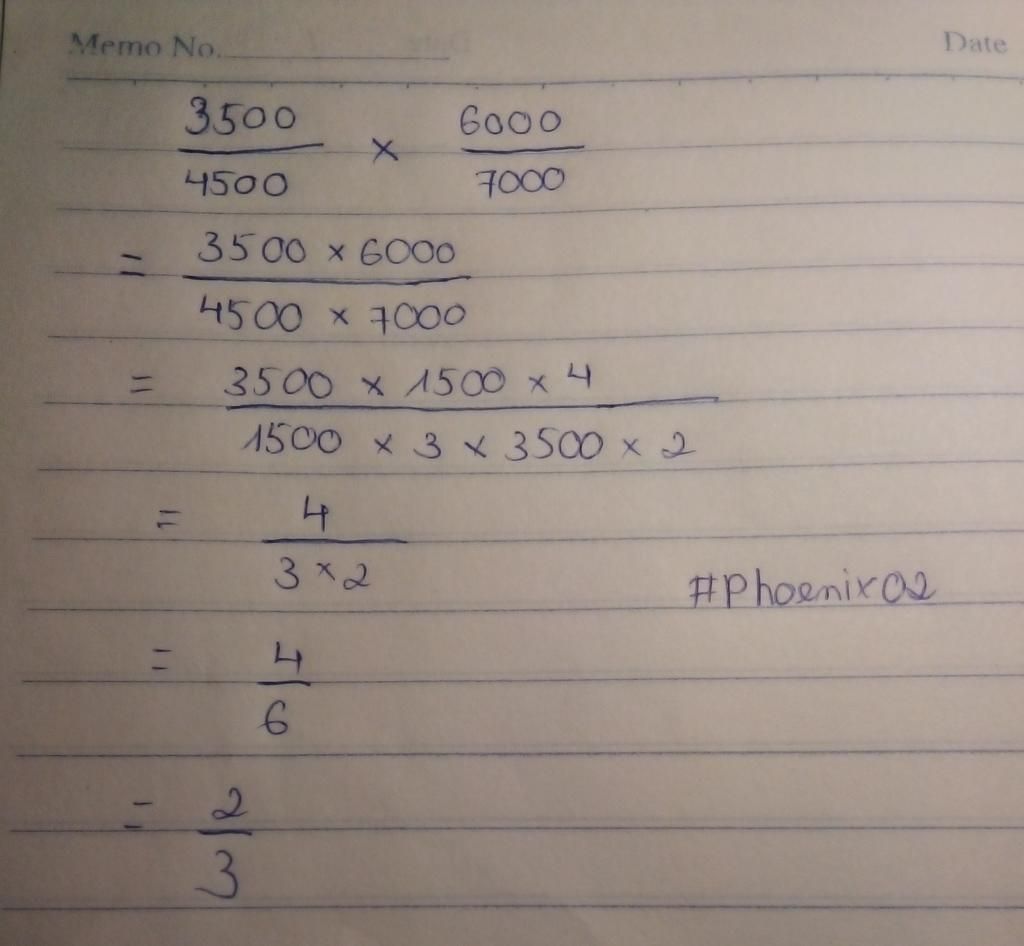 Memo No. Date
3500/4500 × 6000/7000
= 3500 × 6000 / 4500 × 7000
= 3500 × 1500 × 4 / 1500 × 3 × 3500 × 2
= 4 / 3 × 2
#Phoenix02
= 4/6
= 2/3